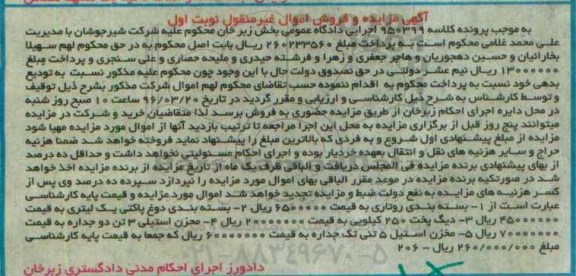 آگهی مزایده و فروش اموال غیرمنقول نوبت اول
به موجب پرونده کلاسه ۹۵۰۳۹۹ اجرایی دادگاه عمومی بخش زبر خان محکوم علیه شرکت شیرجوشان با مدیریت
علی محمد غلامی محکوم است به پرداخت مبلغ ۲۶۰۲۳۳۵۶۰ ریال بابت اصل محکوم به در حق محکوم لهم سهیلا
بخارائیان و حسین دهجوریان و هاجر جعفری و زهرا و فرشته حیدری و ملیحه حصاری و علی سنجری و پرداخت مبلغ
۱۳۰۰۰۰۰۰ ریال نیم عشر دولتی در حق صندوق دولت حال با این وجود چون محکوم علیه مذکور نسبت به تودیع
بدهی خود نسبت به پرداخت محکوم به اقدام ننموده حسب تقاضای محکوم لهم اموال شرکت مذکور بشرح ذیل توقیف
و توسط کارشناس به شرح ذیل کارشناسی و ارزیابی و مقرر گردید در تاریخ ۹۶/۰۳/۲۰ ساعت ۱۰ صبح روز شنبه
در محل دایره اجرای احکام زبرخان از طریق مزایده حضوری به فروش برسد لذا متقاضیان خرید و شرکت در مزایده
میتوانند پنج روز قبل از برگزاری مزایده به محل این اجرا مراجعه تا ترتیب بازدید آنها از اموال مورد مزایده مهیا شود
مزایده از مبلغ پیشنهادی اول شروع و به فردی که بالاترین مبلغ را پیشنهاد نماید فروخته خواهد شد ضمنا هزینه
حراج و سایر هزینه های نقل و انتقال بعهده خریدار بوده و اجرای احکام مسئولیتی نخواهد داشت و حداقل ده درصد
از بهای پیشنهادی برنده مزایده فی المجلس دریافت و الباقی ظرف یک ماه از تاریخ مزایده از برنده مزایده اخذ خواهد
شد در صورتیکه برنده مزایده در موعد مقرر الباقی بهای اموال مورد مزایده را نپردازد سپرده ده درصد وی پس از
کسر هزینه های مزایده به نفع دولت ضبط و مزایده تجدید خواهد شد اموال مورد مزایده و قیمت پایه کارشناسی
عبارت است از ۱- بسته بندی روتاری به قیمت ۶۵۰۰۰۰۰۰ ریال ۲- بسته بندی دوغ پاکتی یک لیتری به قیمت
۴۵۰۰۰۰۰۰ ریال ۳- دیگ پخت ۲۵۰ کیلویی به قیمت ۲۰۰۰۰۰۰۰ ریال ۴- مخزن استیلی ۳ تن دو جداره به قیمت
۷۰۰۰۰۰۰۰ ریال ۵- مخزن استیل ۵ تنی تک جداره به قیمت ۶۰۰۰۰۰۰۰ ریال که جمعا به قیمت پایه کارشناسی
مبلغ ۲۶۰/۰۰۰/۰۰۰ ریال - ۲۰۶
دادورز اجرای احکام مدنی دادگستری زبرخان